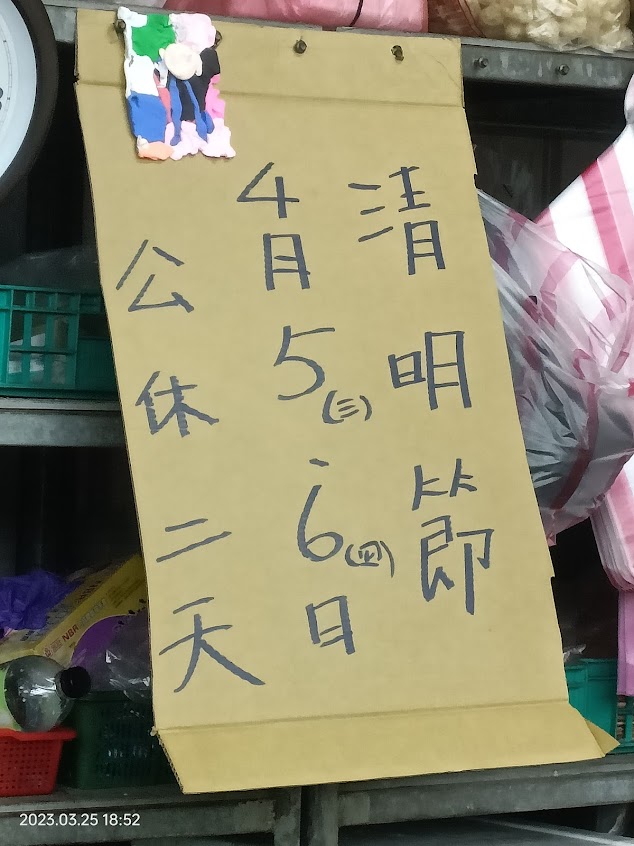 清明節
4月5(三)、6(四)日
公休二天
NBR
2023.03.25 18:52